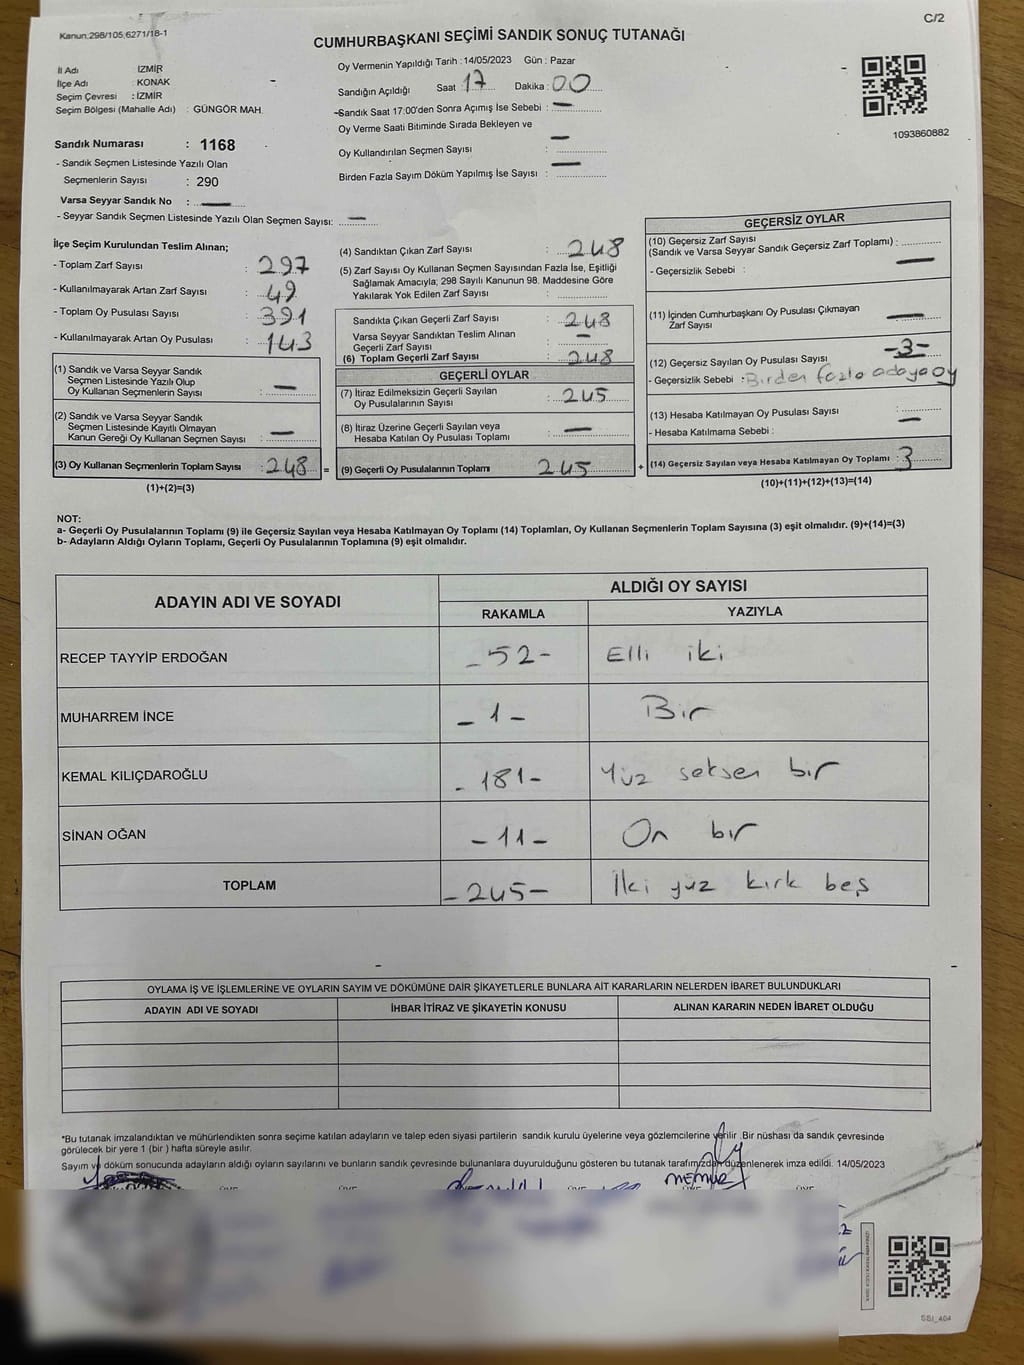 C/2
Kanun:298/105,6271/18-1
CUMHURBAŞKANI SEÇİMİ SANDIK SONUÇ TUTANAĞI
İl Adı İZMİR
İlçe Adı : KONAK
Seçim Çevresi : İZMİR
Seçim Bölgesi (Mahalle Adı) : GÜNGÖR MAH.
Oy Vermenin Yapıldığı Tarih :14/05/2023 Gün : Pazar
Sandığın Açıldığı Saat : 17 Dakika : 00
-Sandık Saat 17:00'den Sonra Açımış İse Sebebi : —
Oy Verme Saati Bitiminde Sırada Bekleyen ve
Oy Kullandırılan Seçmen Sayısı : —
Birden Fazla Sayım Döküm Yapılmış İse Sayısı : —
1093860882
Sandık Numarası : 1168
- Sandık Seçmen Listesinde Yazılı Olan
Seçmenlerin Sayısı : 290
Varsa Seyyar Sandık No : —
- Seyyar Sandık Seçmen Listesinde Yazılı Olan Seçmen Sayısı: —
İlçe Seçim Kurulundan Teslim Alınan;
- Toplam Zarf Sayısı : 297
- Kullanılmayarak Artan Zarf Sayısı : 49
- Toplam Oy Pusulası Sayısı : 391
- Kullanılmayarak Artan Oy Pusulası : 143
(1) Sandık ve Varsa Seyyar Sandık
Seçmen Listesinde Yazılı Olup
Oy Kullanan Seçmenlerin Sayısı : —
(2) Sandık ve Varsa Seyyar Sandık
Seçmen Listesinde Kayıtlı Olmayan
Kanun Gereği Oy Kullanan Seçmen Sayısı : —
(3) Oy Kullanan Seçmenlerin Toplam Sayısı : 248 =
(1)+(2)=(3)
(4) Sandıktan Çıkan Zarf Sayısı : 248
(5) Zarf Sayısı Oy Kullanan Seçmen Sayısından Fazla İse, Eşitliği
Sağlamak Amacıyla, 298 Sayılı Kanunun 98. Maddesine Göre
Yakılarak Yok Edilen Zarf Sayısı :
Sandıkta Çıkan Geçerli Zarf Sayısı : 248
Varsa Seyyar Sandıktan Teslim Alınan
Geçerli Zarf Sayısı : —
(6) Toplam Geçerli Zarf Sayısı : 248
GEÇERLİ OYLAR
(7) İtiraz Edilmeksizin Geçerli Sayılan
Oy Pusulalarının Sayısı : 245
(8) İtiraz Üzerine Geçerli Sayılan veya
Hesaba Katılan Oy Pusulası Toplamı : —
(9) Geçerli Oy Pusulalarının Toplamı 245 +
GEÇERSİZ OYLAR
(10) Geçersiz Zarf Sayısı
(Sandık ve Varsa Seyyar Sandık Geçersiz Zarf Toplamı) : —
- Geçersizlik Sebebi :
(11) İçinden Cumhurbaşkanı Oy Pusulası Çıkmayan
Zarf Sayısı —
(12) Geçersiz Sayılan Oy Pusulası Sayısı -3-
- Geçersizlik Sebebi : Birden fazla adaya oy
(13) Hesaba Katılmayan Oy Pusulası Sayısı : —
- Hesaba Katılmama Sebebi :
(14) Geçersiz Sayılan veya Hesaba Katılmayan Oy Toplamı : 3
(10)+(11)+(12)+(13)=(14)
NOT:
a- Geçerli Oy Pusulalarının Toplamı (9) ile Geçersiz Sayılan veya Hesaba Katılmayan Oy Toplamı (14) Toplamları, Oy Kullanan Seçmenlerin Toplam Sayısına (3) eşit olmalıdır. (9)+(14)=(3)
b- Adayların Aldığı Oyların Toplamı, Geçerli Oy Pusulalarının Toplamına (9) eşit olmalıdır.
ADAYIN ADI VE SOYADI ALDIĞI OY SAYISI
RAKAMLA YAZIYLA
RECEP TAYYİP ERDOĞAN -52- Elli iki
MUHARREM İNCE -1- Bir
KEMAL KILIÇDAROĞLU -181- Yüz seksen bir
SİNAN OĞAN -11- On bir
TOPLAM -245- İki yüz kırk beş
OYLAMA İŞ VE İŞLEMLERİNE VE OYLARIN SAYIM VE DÖKÜMÜNE DAİR ŞİKAYETLERLE BUNLARA AİT KARARLARIN NELERDEN İBARET BULUNDUKLARI
ADAYIN ADI VE SOYADI İHBAR İTİRAZ VE ŞİKAYETİN KONUSU ALINAN KARARIN NEDEN İBARET OLDUĞU
*Bu tutanak imzalandıktan ve mühürlendikten sonra seçime katılan adayların ve talep eden siyasi partilerin sandık kurulu üyelerine veya gözlemcilerine verilir. Bir nüshası da sandık çevresinde
görülecek bir yere 1 (bir ) hafta süreyle asılır.
Sayım ve döküm sonucunda adayların aldığı oyların sayılarını ve bunların sandık çevresinde bulunanlara duyurulduğunu gösteren bu tutanak tarafımızdan düzenlenerek imza edildi. 14/05/2023
MEMUR
SSI_404